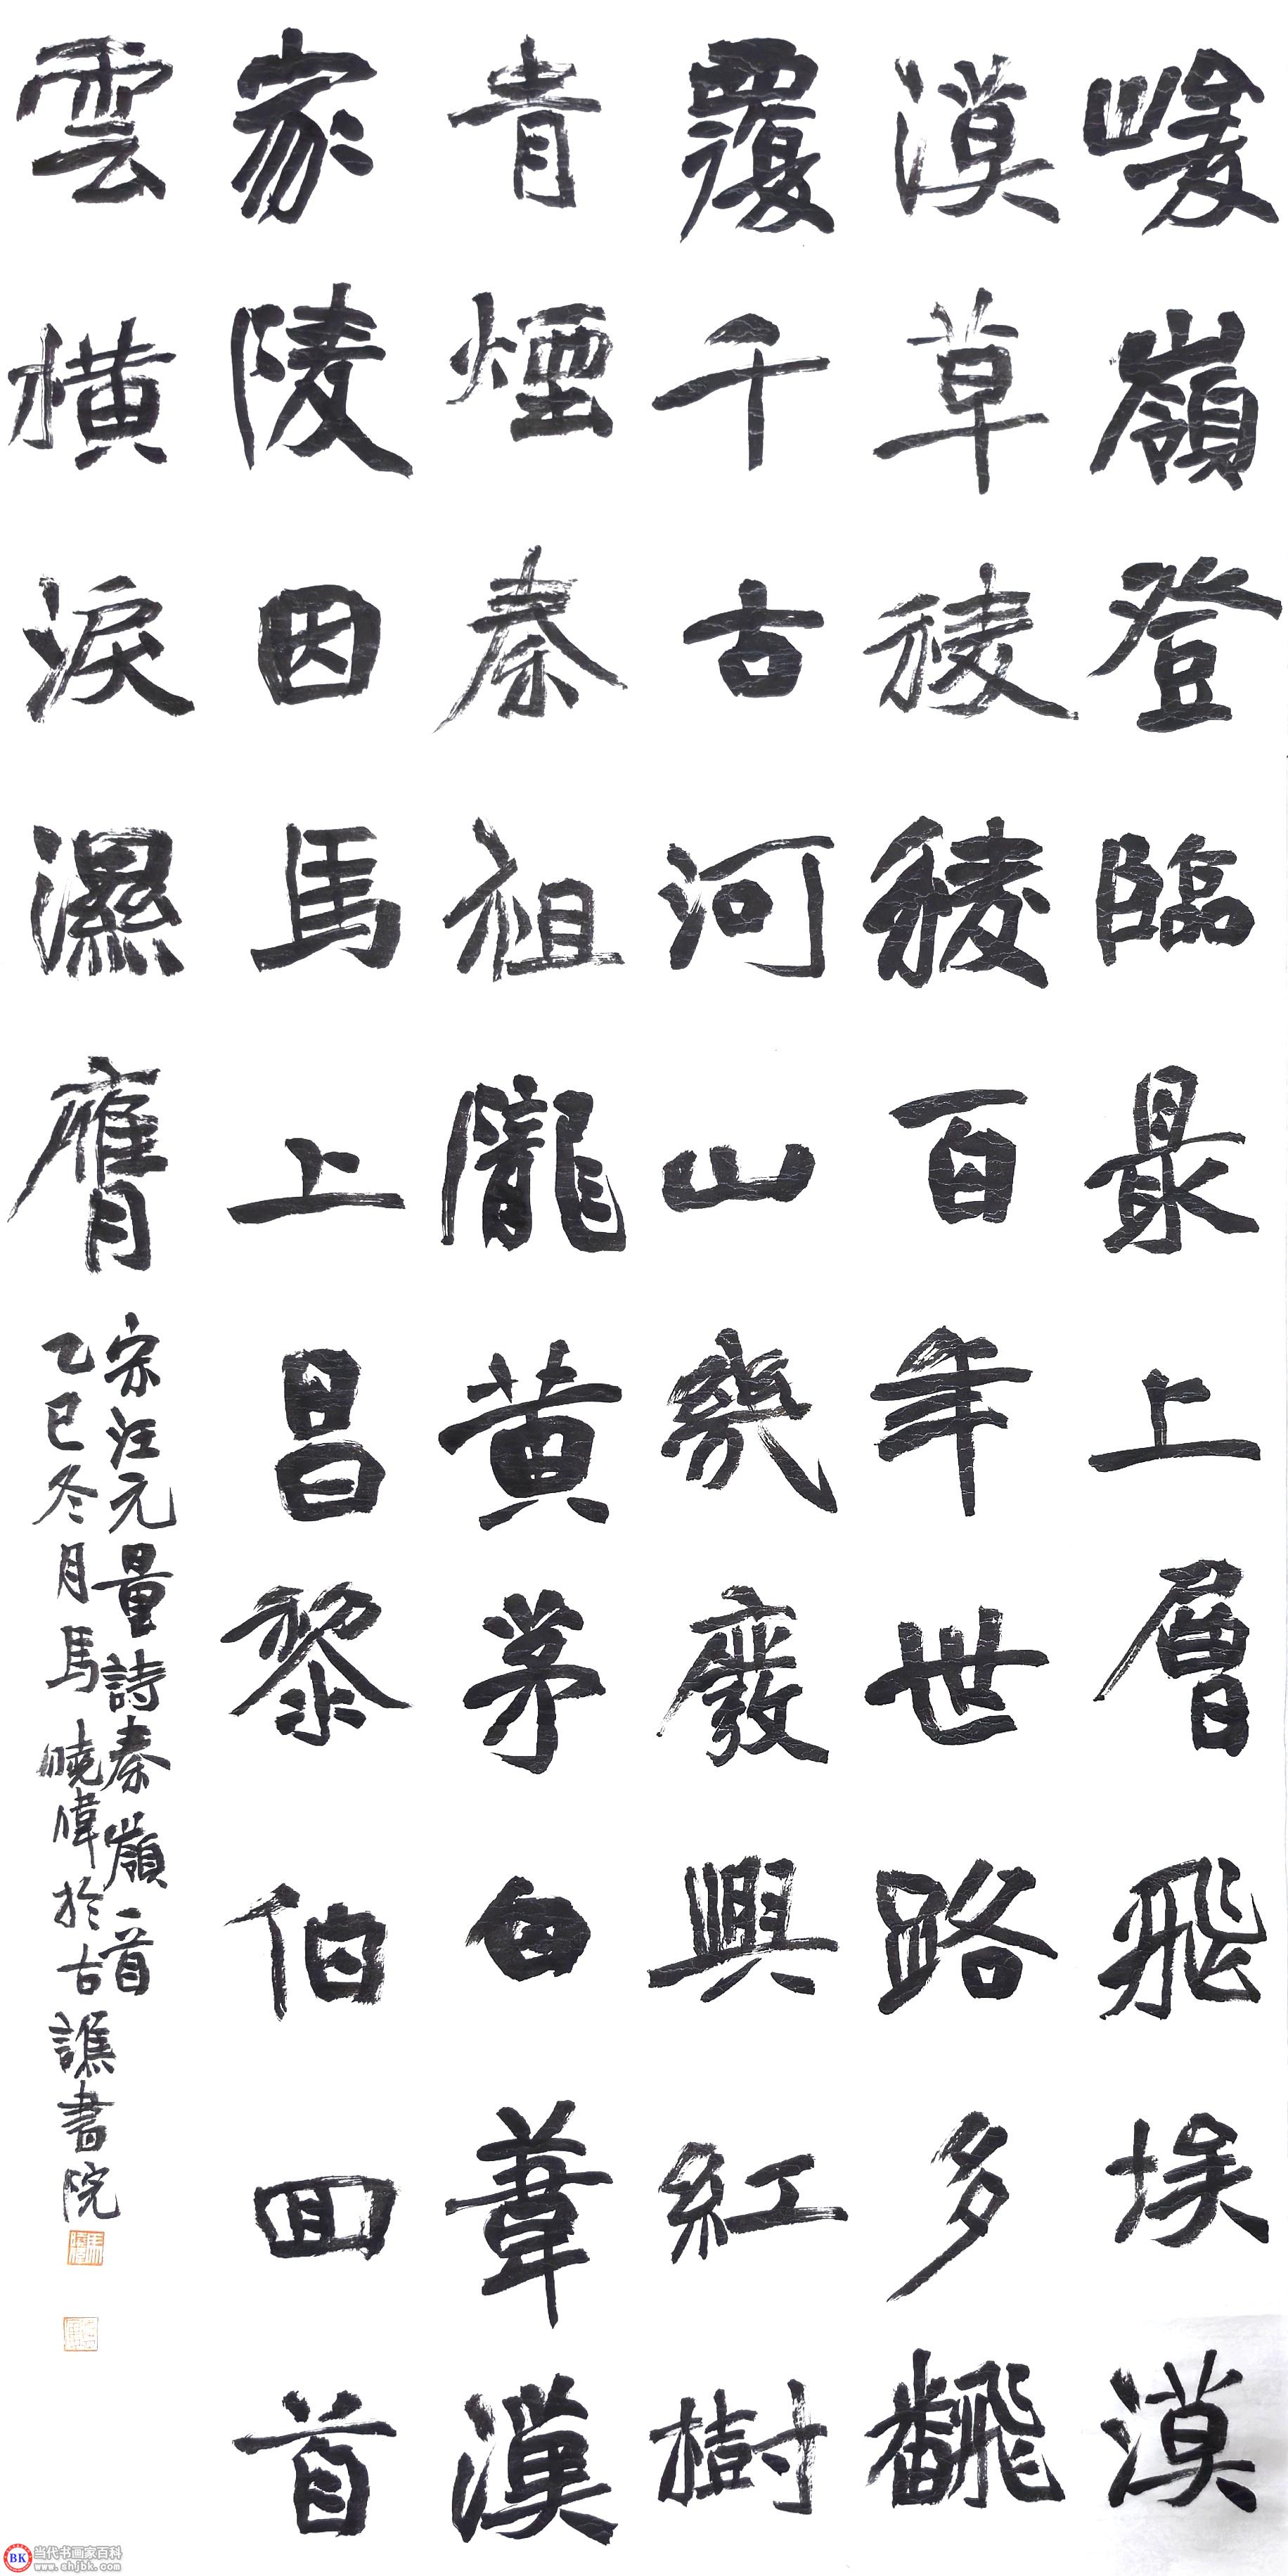 峻嶺登臨最上層飛埃漠
漠草稜稜百年世路多飜
覆千古河山幾廢興紅樹
青煙秦祖隴黃茅白葦漢
家陵因馬上昌黎伯回首
雲橫淚濕膺
宋汪元量詩秦嶺一首
乙巳冬月馬曉偉於古譙書院
BK 当代书画家百科
www.shjbk.com